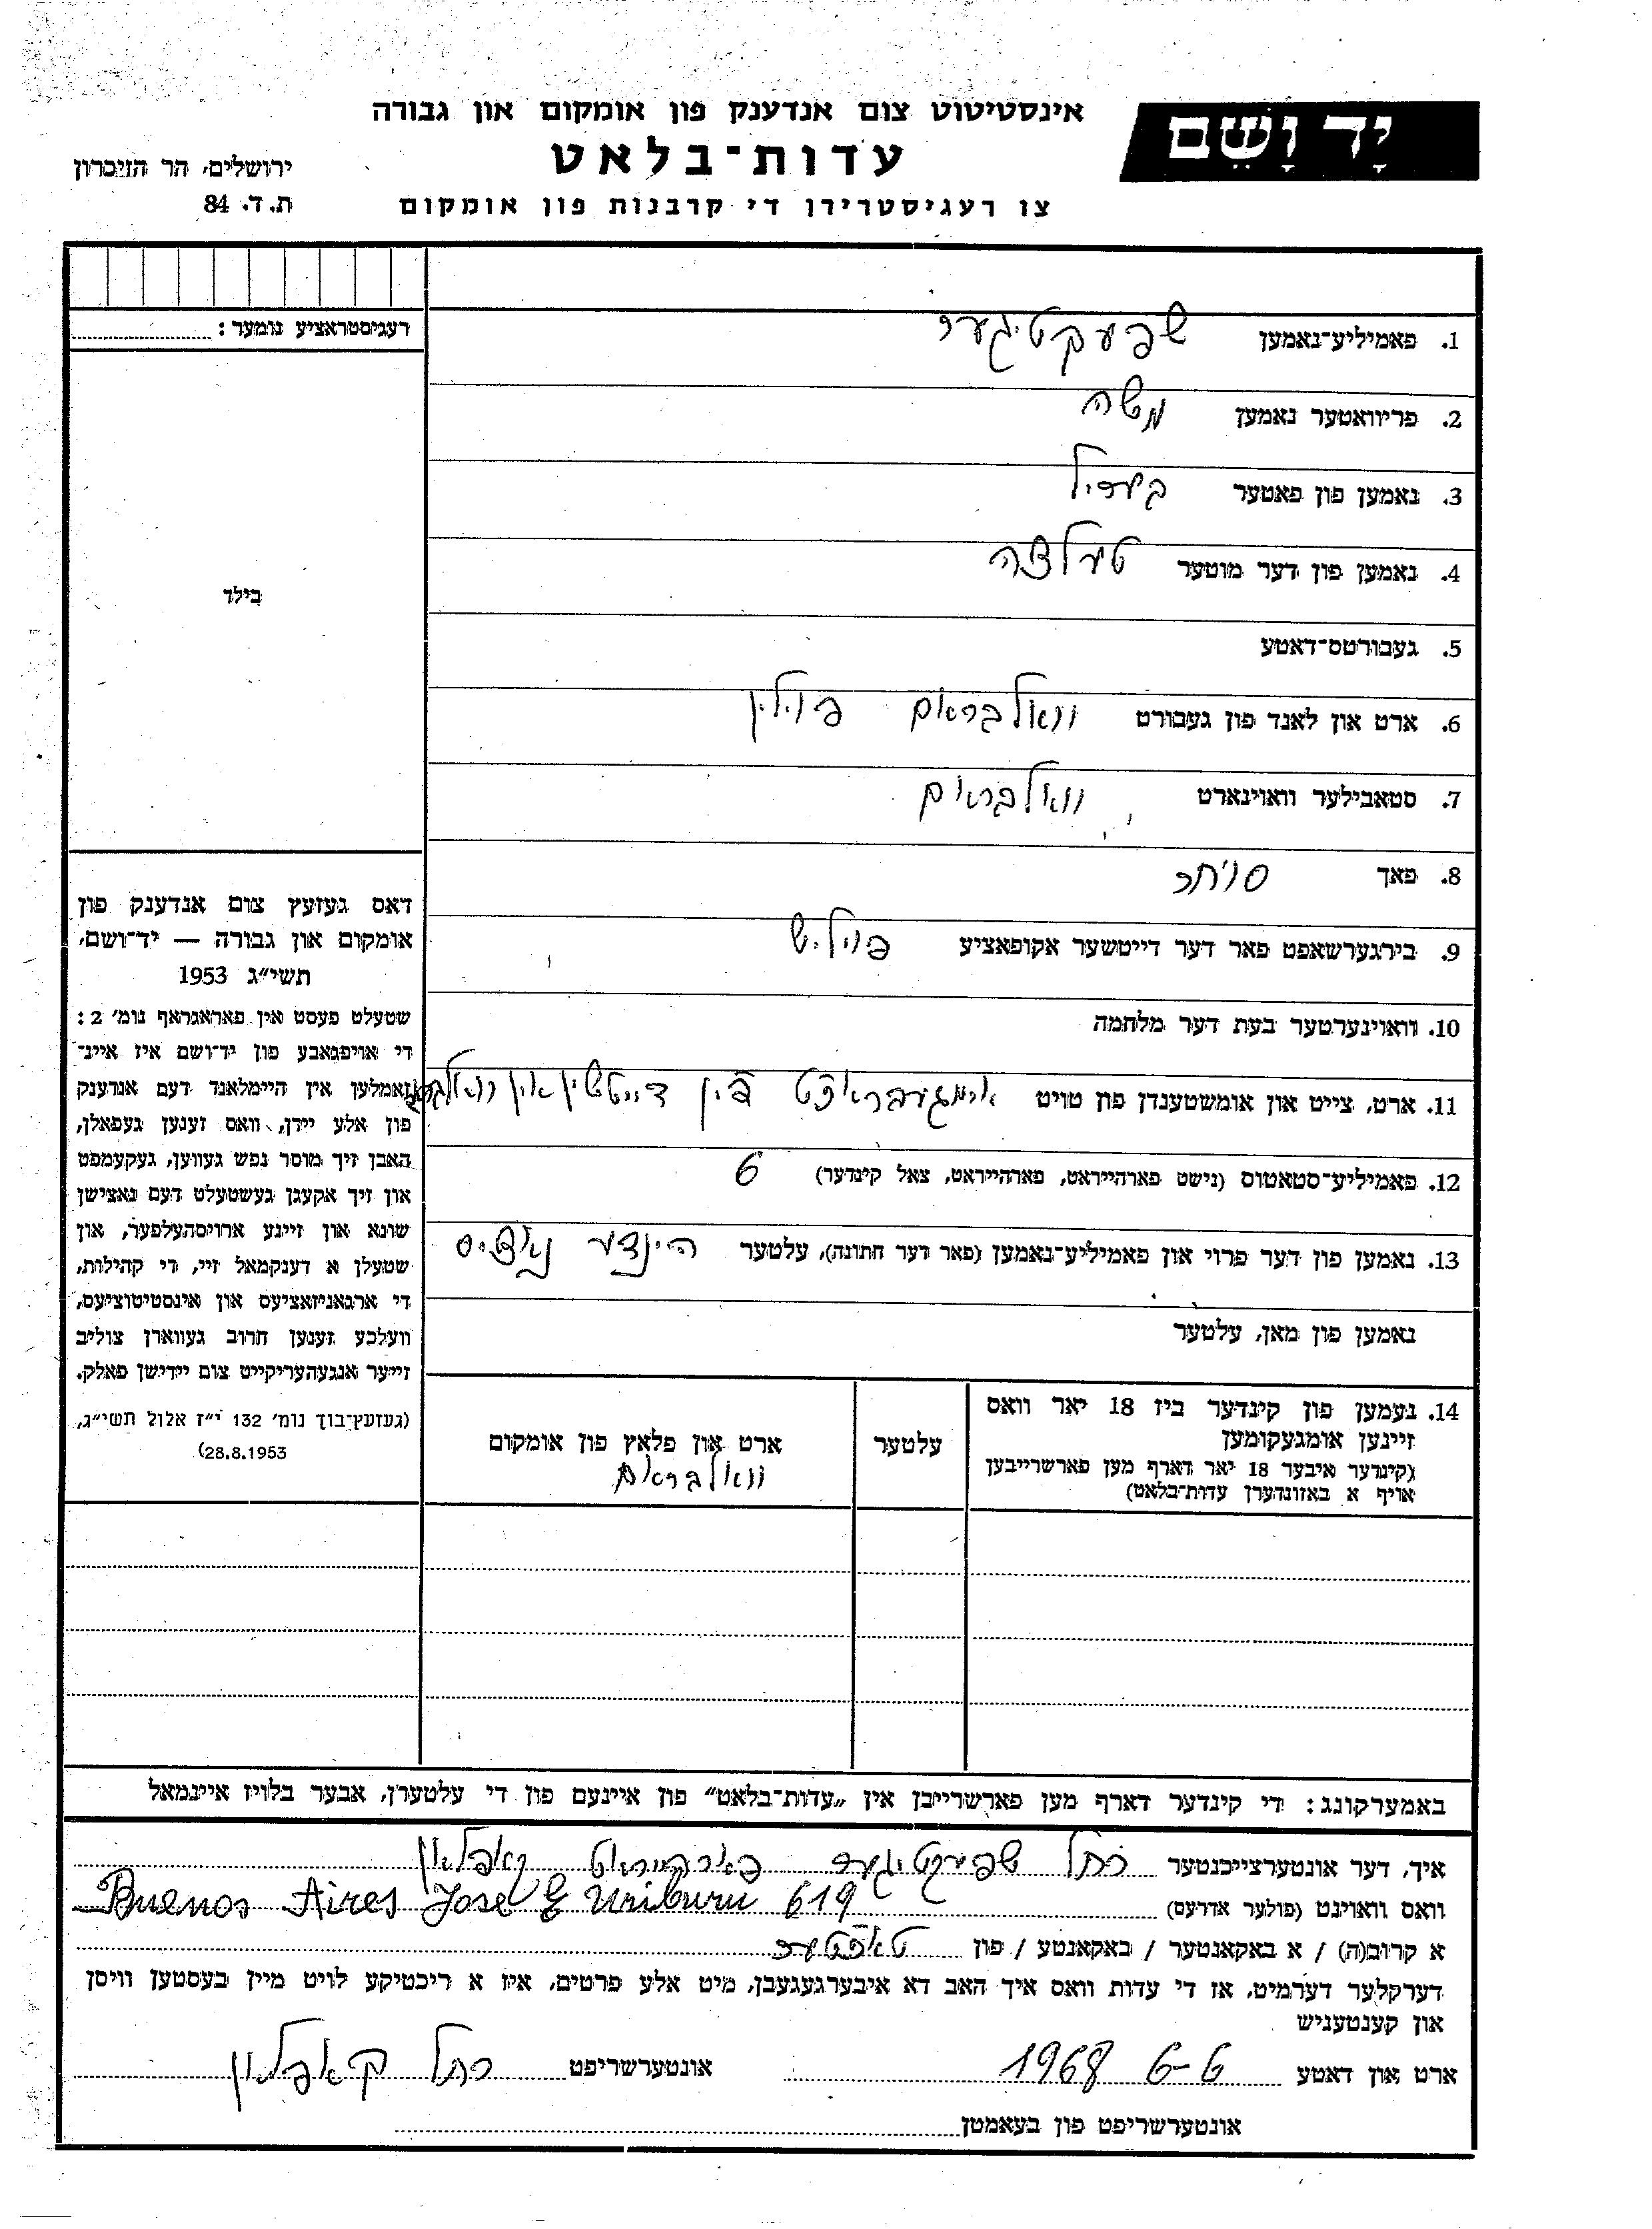 יָד וָשֵׁם
אינסטיטוט צום אנדענק פון אומקום און גבורה
עדות־בלאט
צו רעגיסטרירן די קרבנות פון אומקום
ירושלים, הר הזיכרון
ת.ד. 84
רעגיסטראציע נומער:
בילד
1. פאמיליע־נאמען שפעקטיגער
2. פריוואטער נאמען משה
3. נאמען פון פאטער בעריל
4. נאמען פון דער מוטער
5. געבורטס־דאטע
6. ארט און לאנד פון געבורט וואלבראם פוילין
7. סטאבילער וואוינארט וואלבראם
8. פאך סוחר
9. בירגערשאפט פאר דער דייטשער אקופאציע פויליש
10. וואוינערטער בעת דער מלחמה
11. ארט, צייט און אומשטענדן פון טויט אומגעבראכט פון דייטשין אין וואלבראם
12. פאמיליע־סטאטוס (נישט פארהייראט, פארהייראט, צאל קינדער) 6
13. נאמען פון דער פרוי און פאמיליע־נאמען (פאר דער חתונה), עלטער הינדע
נאמען פון מאן, עלטער
14. נעמען פון קינדער ביז 18 יאר וואס
זיינען אומגעקומען
(קינדער איבער 18 יאר דארף מען פארשרייבן
אויף א באזונדערן עדות־בלאט)
עלטער
ארט און פלאץ פון אומקום
וואלבראם
דאס געזעץ צום אנדענק פון
אומקום און גבורה — יד־ושם,
תשי״ג 1953
שטעלט פעסט אין פאראגראף נומ׳ 2:
די אויפגאבע פון יד־ושם איז איינ־
זאמלען אין היימלאנד דעם אנדענק
פון אלע יידן, וואס זענען געפאלן,
האבן זיך מוסר נפש געווען, געקעמפט
און זיך אקעגן געשטעלט דעם נאצישן
שונא און זיינע ארויסהעלפער, און
שטעלן א דענקמאל זיי, די קהילות,
די ארגאניזאציעס און אינסטיטוציעס,
וועלכע זענען חרוב געווארן צוליב
זייער אנגעהעריקייט צום יידישן פאלק.
(געזעץ־בוך נומ׳ 132 י״ז אלול תשי״ג,
28.8.1953)
באמערקונג: די קינדער דארף מען פארשרייבן אין „עדות־בלאט״ פון איינעם פון די עלטערן, אבער בלויז איינמאל
איך, דער אונטערצייכנטער רחל שפעקטיגער פארהייראט קאפלאון
וואס וואוינט (פולער אדרעס) Buenos Aires José E Uriburu 619
א קרוב(ה) / א באקאנטער / באקאנטע / פון טאכטער
דערקלער דערמיט, אז די עדות וואס איך האב דא איבערגעגעבן, מיט אלע פרטים, איז א ריכטיקע לויט מיין בעסטען וויסן
און קענטעניש
ארט און דאטע 6-6 1968 אונטערשריפט רחל קאפלאון
אונטערשריפט פון בעאמטן